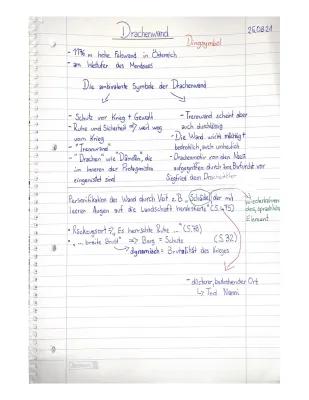 Drachenwand
25.08.21
Dingsymbol
- 1176 m hohe Felswand in Österreich
- am Westufer des Mondsees
Die ambivalente Symbole der Drachenwand
- Schutz vor Krieg + Gewalt
- Ruhe und Sicherheit => weit weg
vom Krieg
- "Trennwand"
- "Drachen" wie "Dämonen", die
im Inneren der Protagonisten
eingenistet sind
- Trennwand scheint aber
auch durchlässig
- Die Wand wirkt mächtig +
bedrohlich, auch unheimlich
- Drachenmotiv von den Nazis
aufgegriffen durch ihre Ehrfurcht vor
Siegfried dem Drachentöter
Personifikation der Wand durch Veit z.B. "Schädel, der mit
leeren Augen auf die Landschaft herabstarrte" (S.475)
wiederkehrendes, sprachliches
Element
• Rückzugsort => "Es herrschte Ruhe ..." (S.78)
• "... breite Brust" => Berg = Schutz (S.32)
dynamisch = Brutalität des Krieges
- düsterer, bedrohender Ort
↳ Tod Nanni